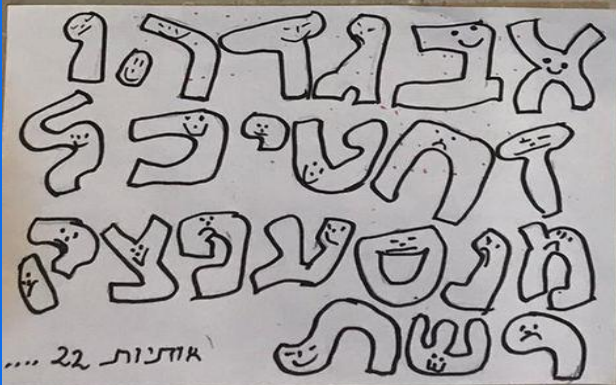 א ב ג ד ה ו
ז ח ט י כ ל
מ נ ס ע פ צ ק
ר ש ת
אותיות 22 ....